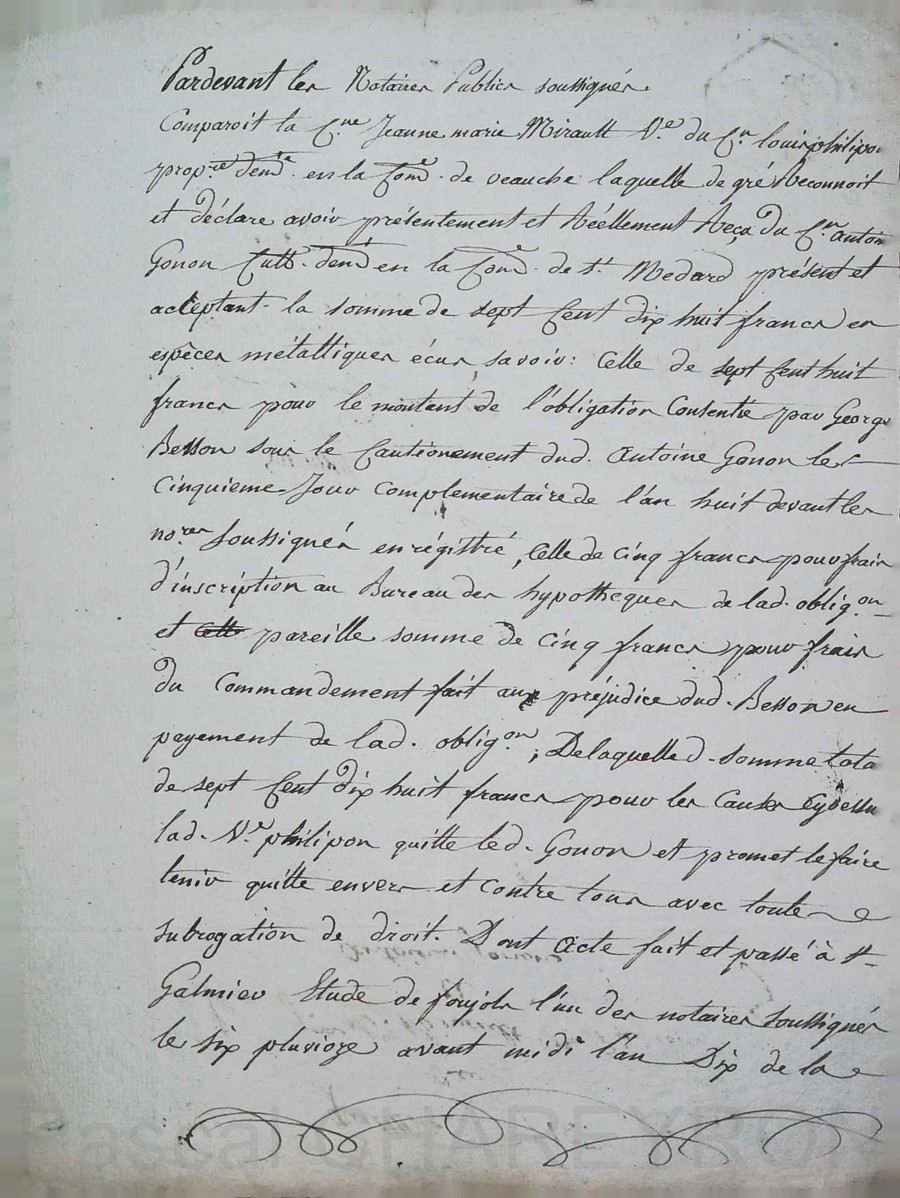 Pardevant les Notaires Publics soussignés.
Comparoit la C.ne Jeanne marie Mirault V.e du C.n louis philipo
prop.re dem.te en la Com.e de veauche laquelle de gré Reconnoit
et déclare avoir présentement et Réellement Reçu du C.n antoi
Gonon Cult. dem.t en la Com.e de S.t Medard présent et
acceptant la somme de sept Cent dix huit francs en
espèces métalliques écus savoir: Celle de sept Cent huit
francs pour le montant de l'obligation Consentie par George
Besson sous le Cautionement dud. Antoine Gonon le
Cinquieme Jour Complementaire de l'an huit devant les
no.res soussignés enrégistré, Celle de Cinq francs pour frais
d'inscription au Bureau des hypotheques de lad. oblig.on
et pareille somme de Cinq francs pour frais
du Commandement fait au préjudice dud. Besson en
payement de lad. oblig.on; De laquelle d. somme tota
de sept Cent dix huit francs pour les Causes Cydessu
lad. V.e philipon quitte led. Gonon et promet le faire
tenir quitte envers et Contre tous avec toute
subrogation de droit. Dont Acte fait et passé à S.t
Galmier Etude de foujols l'un des notaires soussignés
le six pluvioze avant midi l'an Dix de la
Pascal CHAREYRON